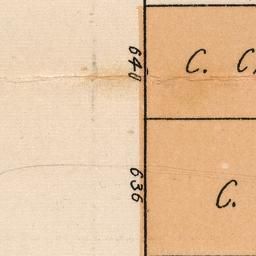 640
C. C.
636
C.